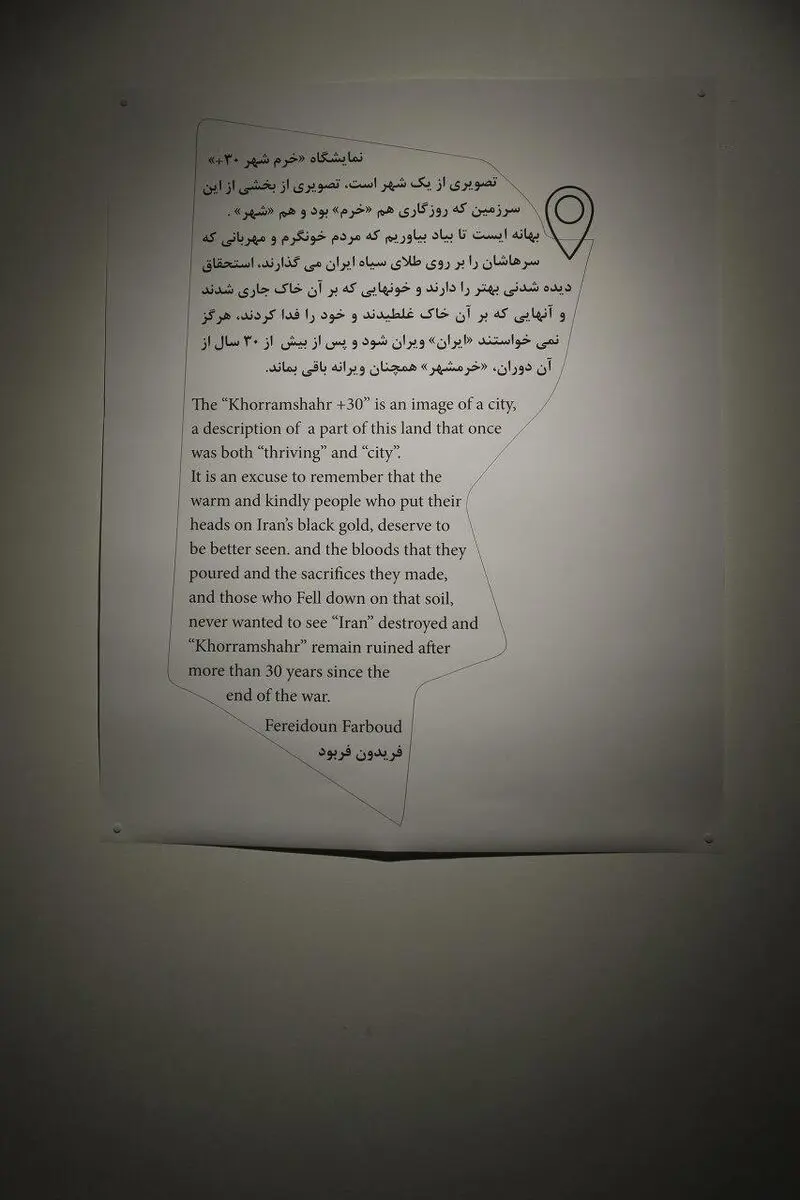 نمایشگاه «خرم شهر ۳۰+»
تصویری از یک شهر است، تصویری از بخشی از این
سرزمین که روزگاری هم «خرم» بود و هم «شهر» .
بهانه ایست تا بیاد بیاوریم که مردم خونگرم و مهربانی که
سرهاشان را بر روی طلای سیاه ایران می گذارند، استحقاق
دیده شدنی بهتر را دارند و خونهایی که بر آن خاک جاری شدند
و آنهایی که بر آن خاک غلطیدند و خود را فدا کردند، هرگز
نمی خواستند «ایران» ویران شود و پس از بیش از ۳۰ سال از
آن دوران، «خرمشهر» همچنان ویرانه باقی بماند.
The “Khorramshahr +30” is an image of a city,
a description of a part of this land that once
was both “thriving” and “city”.
It is an excuse to remember that the
warm and kindly people who put their
heads on Iran’s black gold, deserve to
be better seen. and the bloods that they
poured and the sacrifices they made,
and those who Fell down on that soil,
never wanted to see “Iran” destroyed and
“Khorramshahr” remain ruined after
more than 30 years since the
end of the war.
Fereidoun Farboud
فریدون فربود